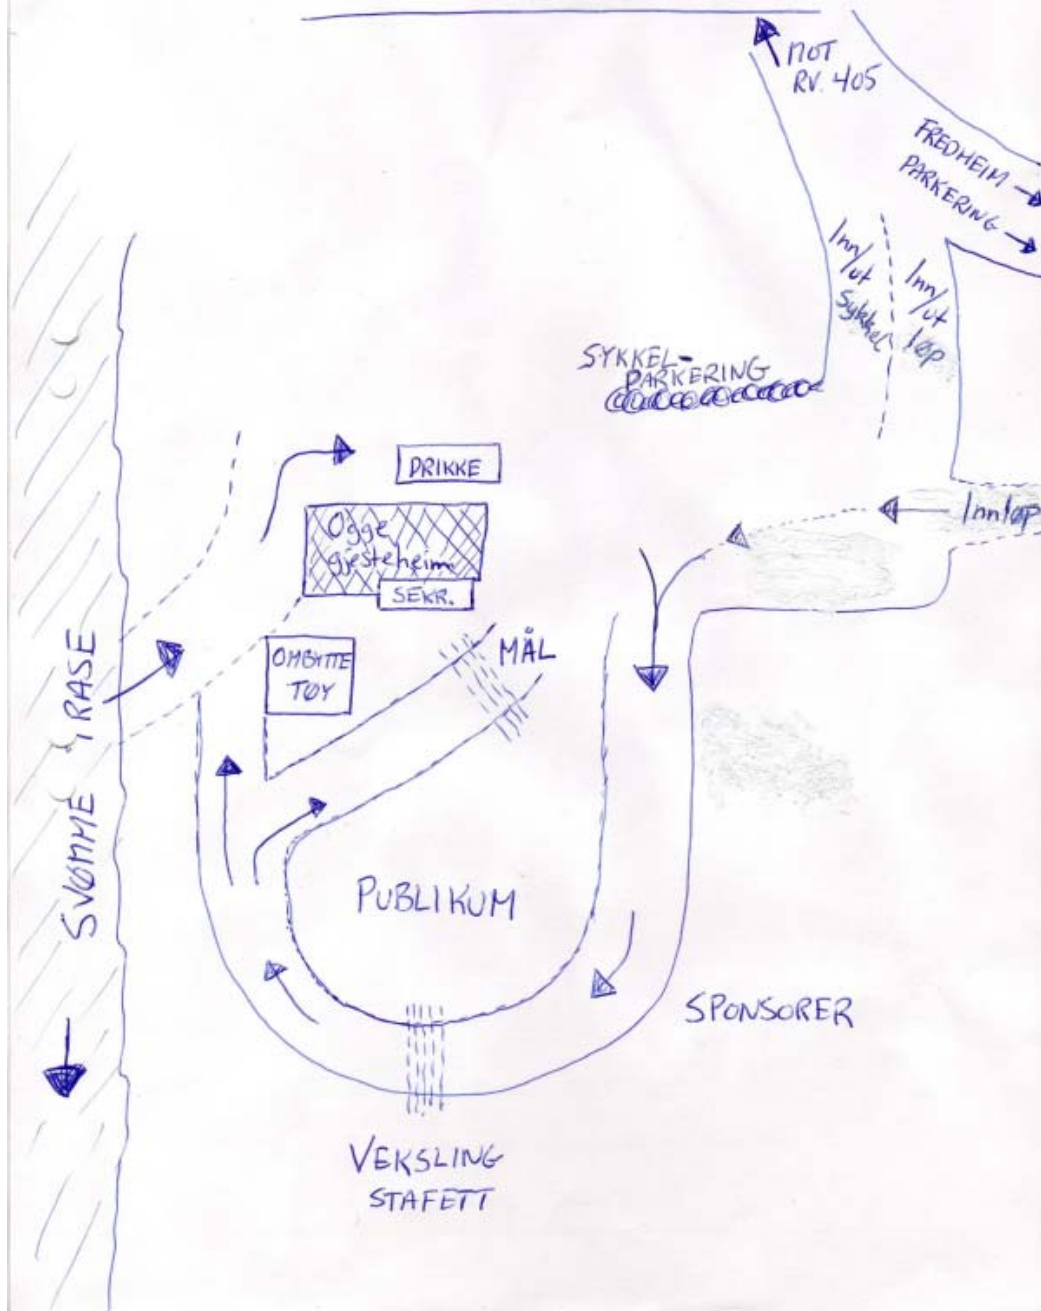 MOT
RV. 405
FREDHEIM
PARKERING
Inn/ut
Sykkel
Inn/ut
løp
SYKKEL-
PARKERING
DRIKKE
Ogge
gjesteheim
SEKR.
Innløp
OMBYTTE
TØY
MÅL
SVØMME TRASE
PUBLIKUM
SPONSORER
VEKSLING
STAFETT